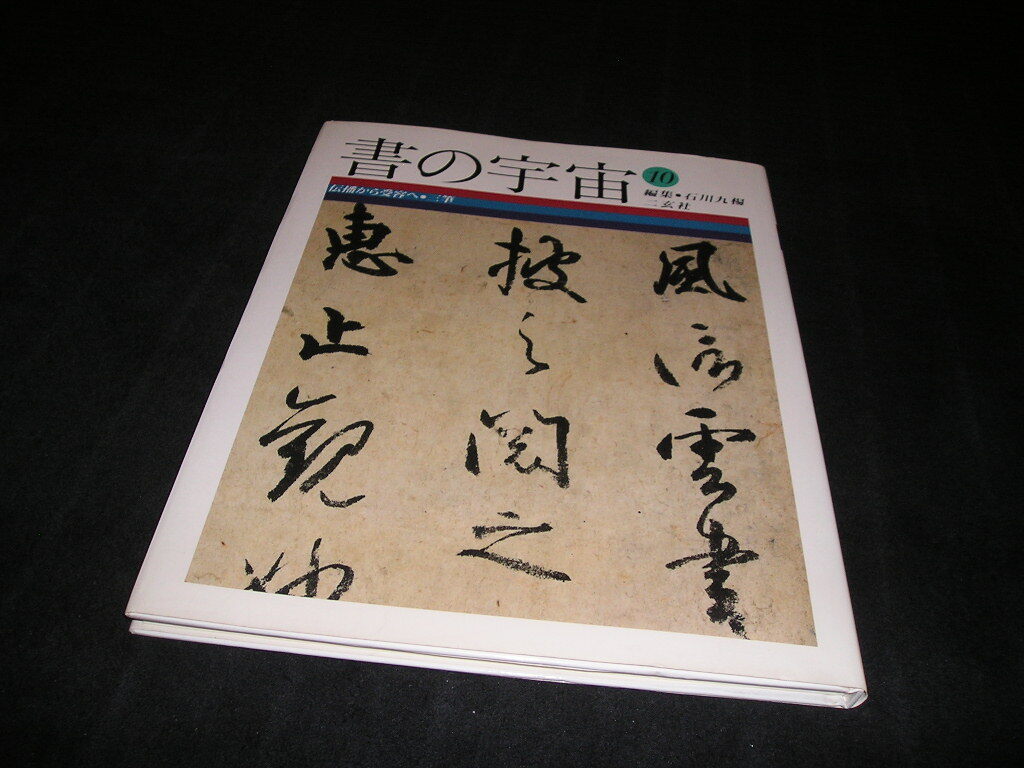 書の宇宙
10
編集・石川九楊
二玄社
伝播から受容へ・三筆
風信雲書
披之閲之
恵止観妙